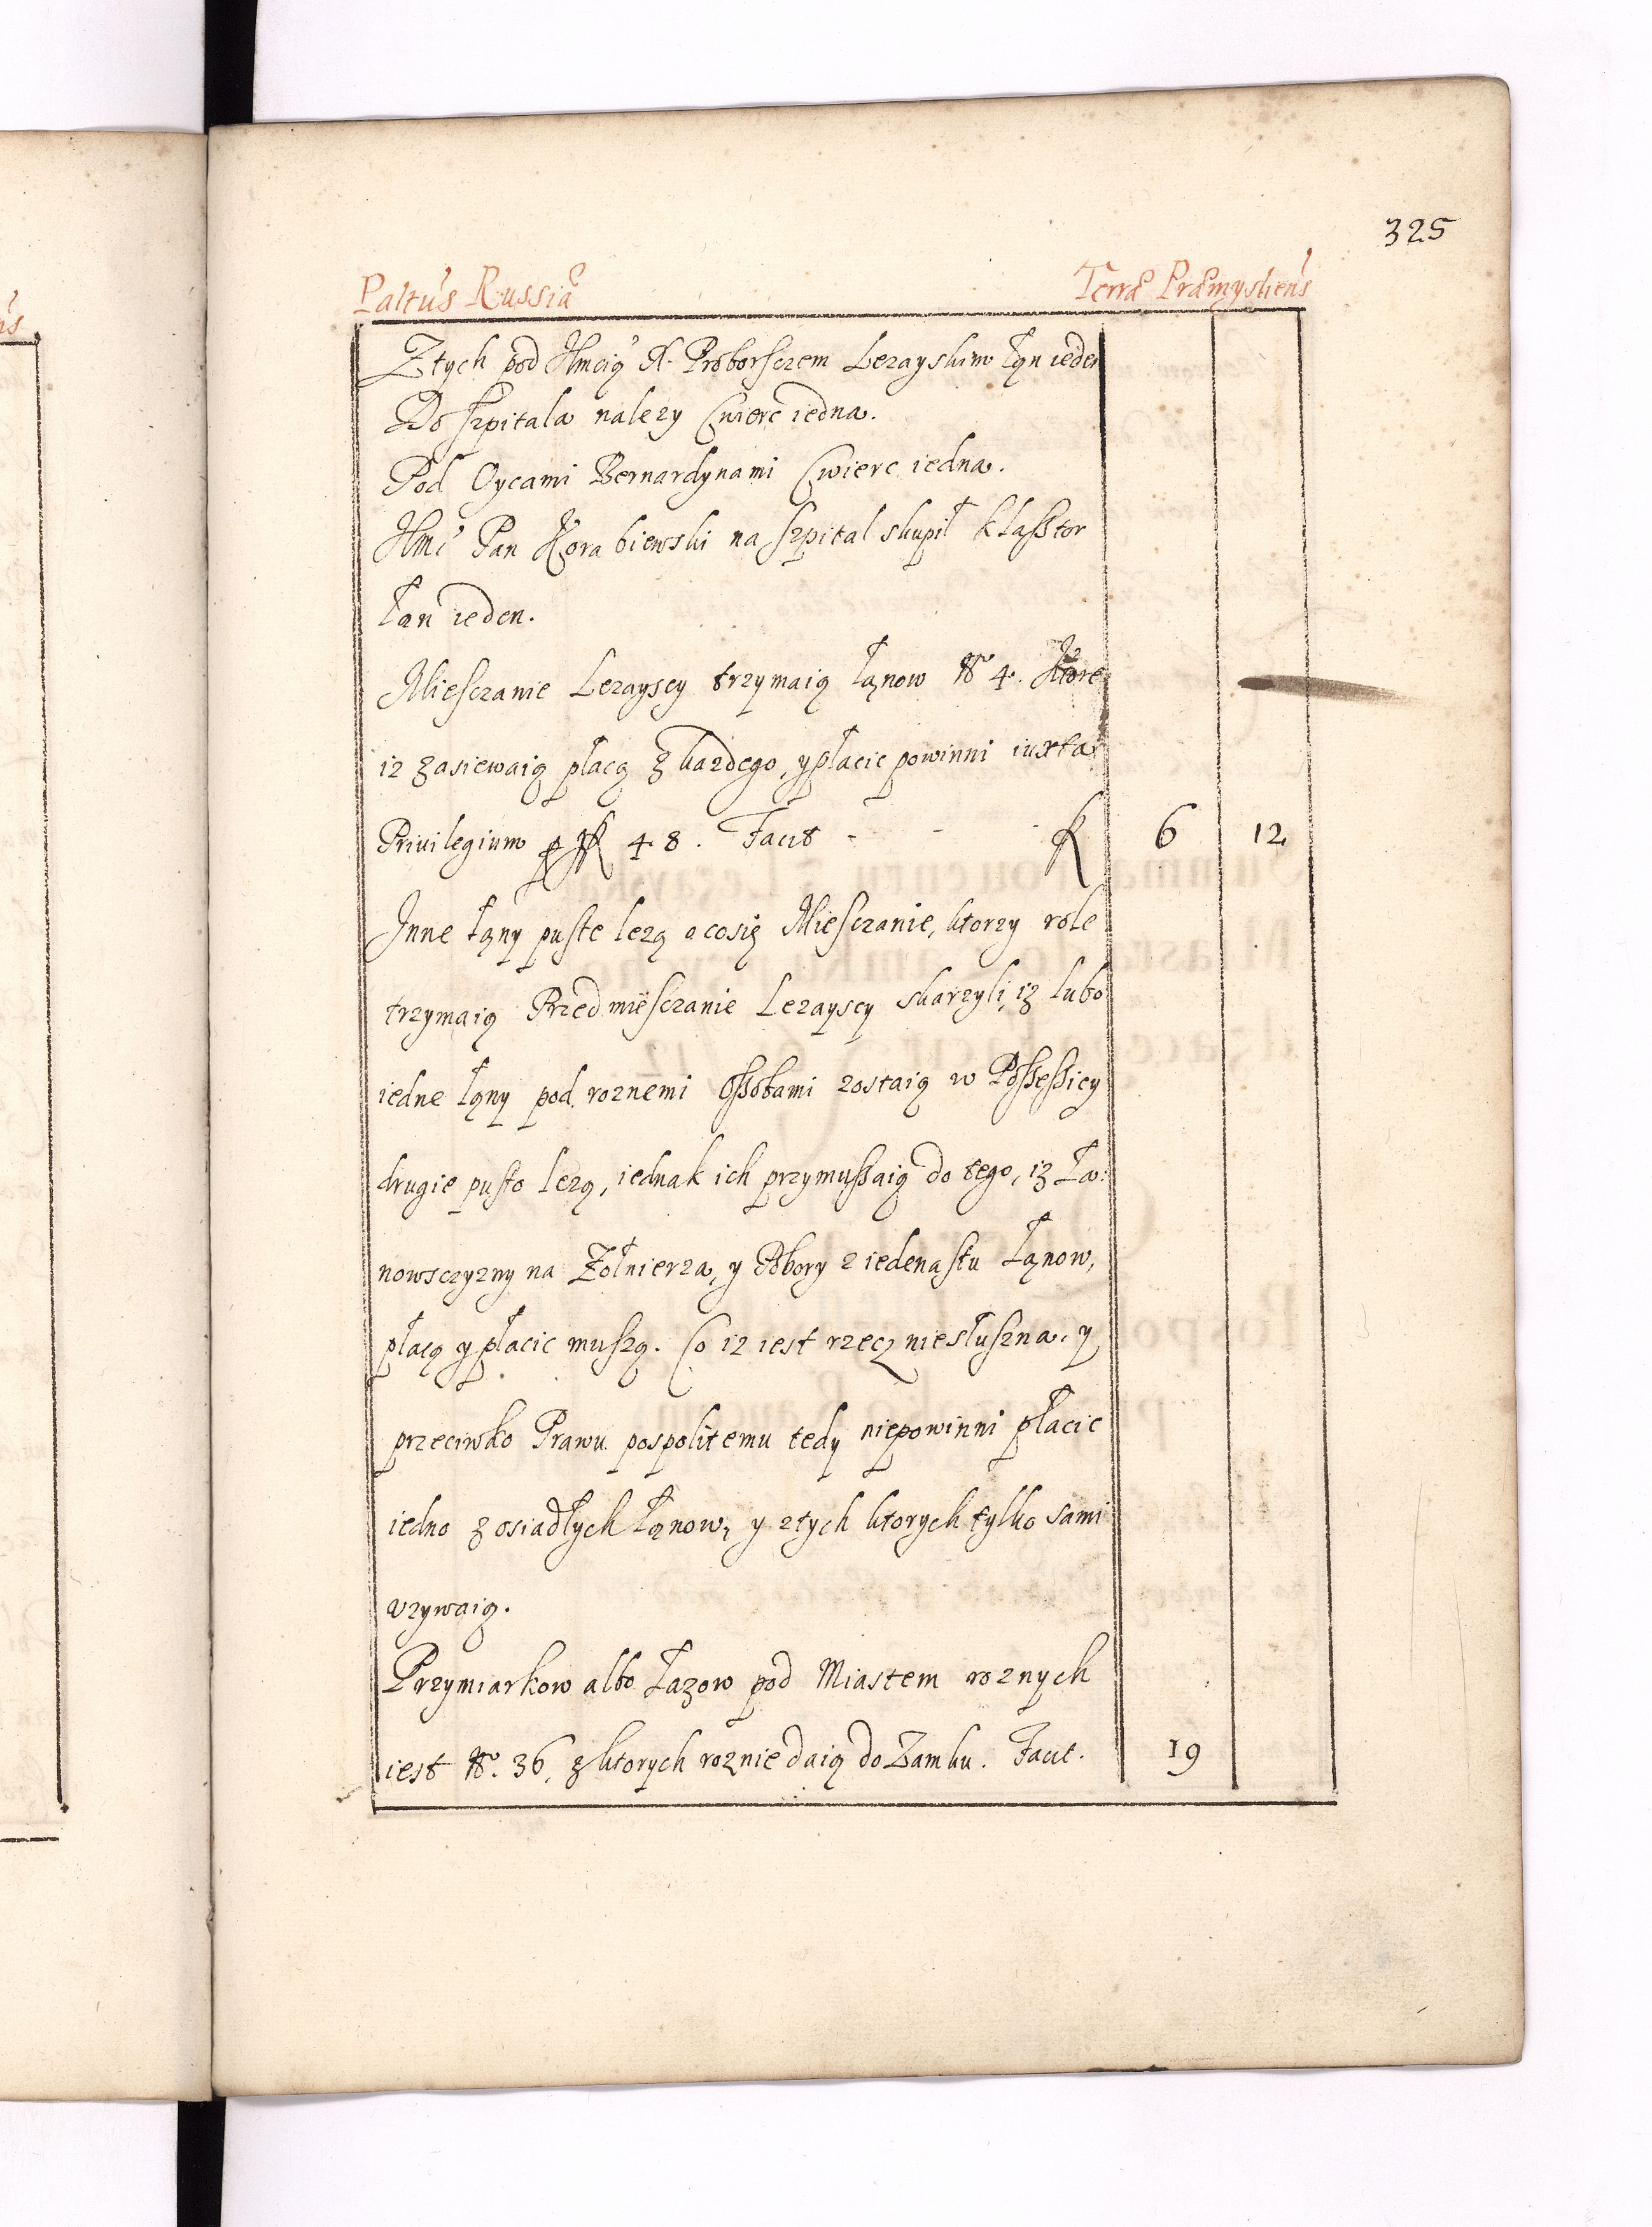 325
Paltus Russiæ Terræ Præmysliens
Z tych pod Jmcią X. Proborsczem Lezayskim Łąn ieden
Do szpitala nalezy Cwierc iedna.
Pod Oycami Bernardynami Cwierc iedna.
Jmć Pan Korabiewski na szpital skupił klasstor
Łan ieden.
Miesczanie Lezayscy trzymaią Łąnow No 4. Ktore
iz zasiewaią płacą z kazdego, y płacic powinni iuxta
Priuilegium p gr 48. Facit - - - f 6 12
Jnne Łąny puste lezą a cosię Miesczanie, ktorzy role
trzymaią Przedmiesczanie Lezayscy skarzyli, iz lubo
iedne Łąny pod roznemi Ossobami zostaią w Possessiey
drugie pusto lezą, iednak ich przymussaią do tego, iz Ła:
nowsczyzny na Zołnierza, y Pobory z iedenastu Łąnow,
płacą y płacic muszą. Co iz iest rzecz niesłuszna, y
przeciwko Prawu pospolitemu tedy niepowinni płacic
iedno z osiadłych Łąnow, y z tych ktorych tylko sami
vzywaią.
Przymiarkow albo Łazow pod Miastem roznych
iest No. 36, z ktorych roznie daią do Zamku. Facit. 19